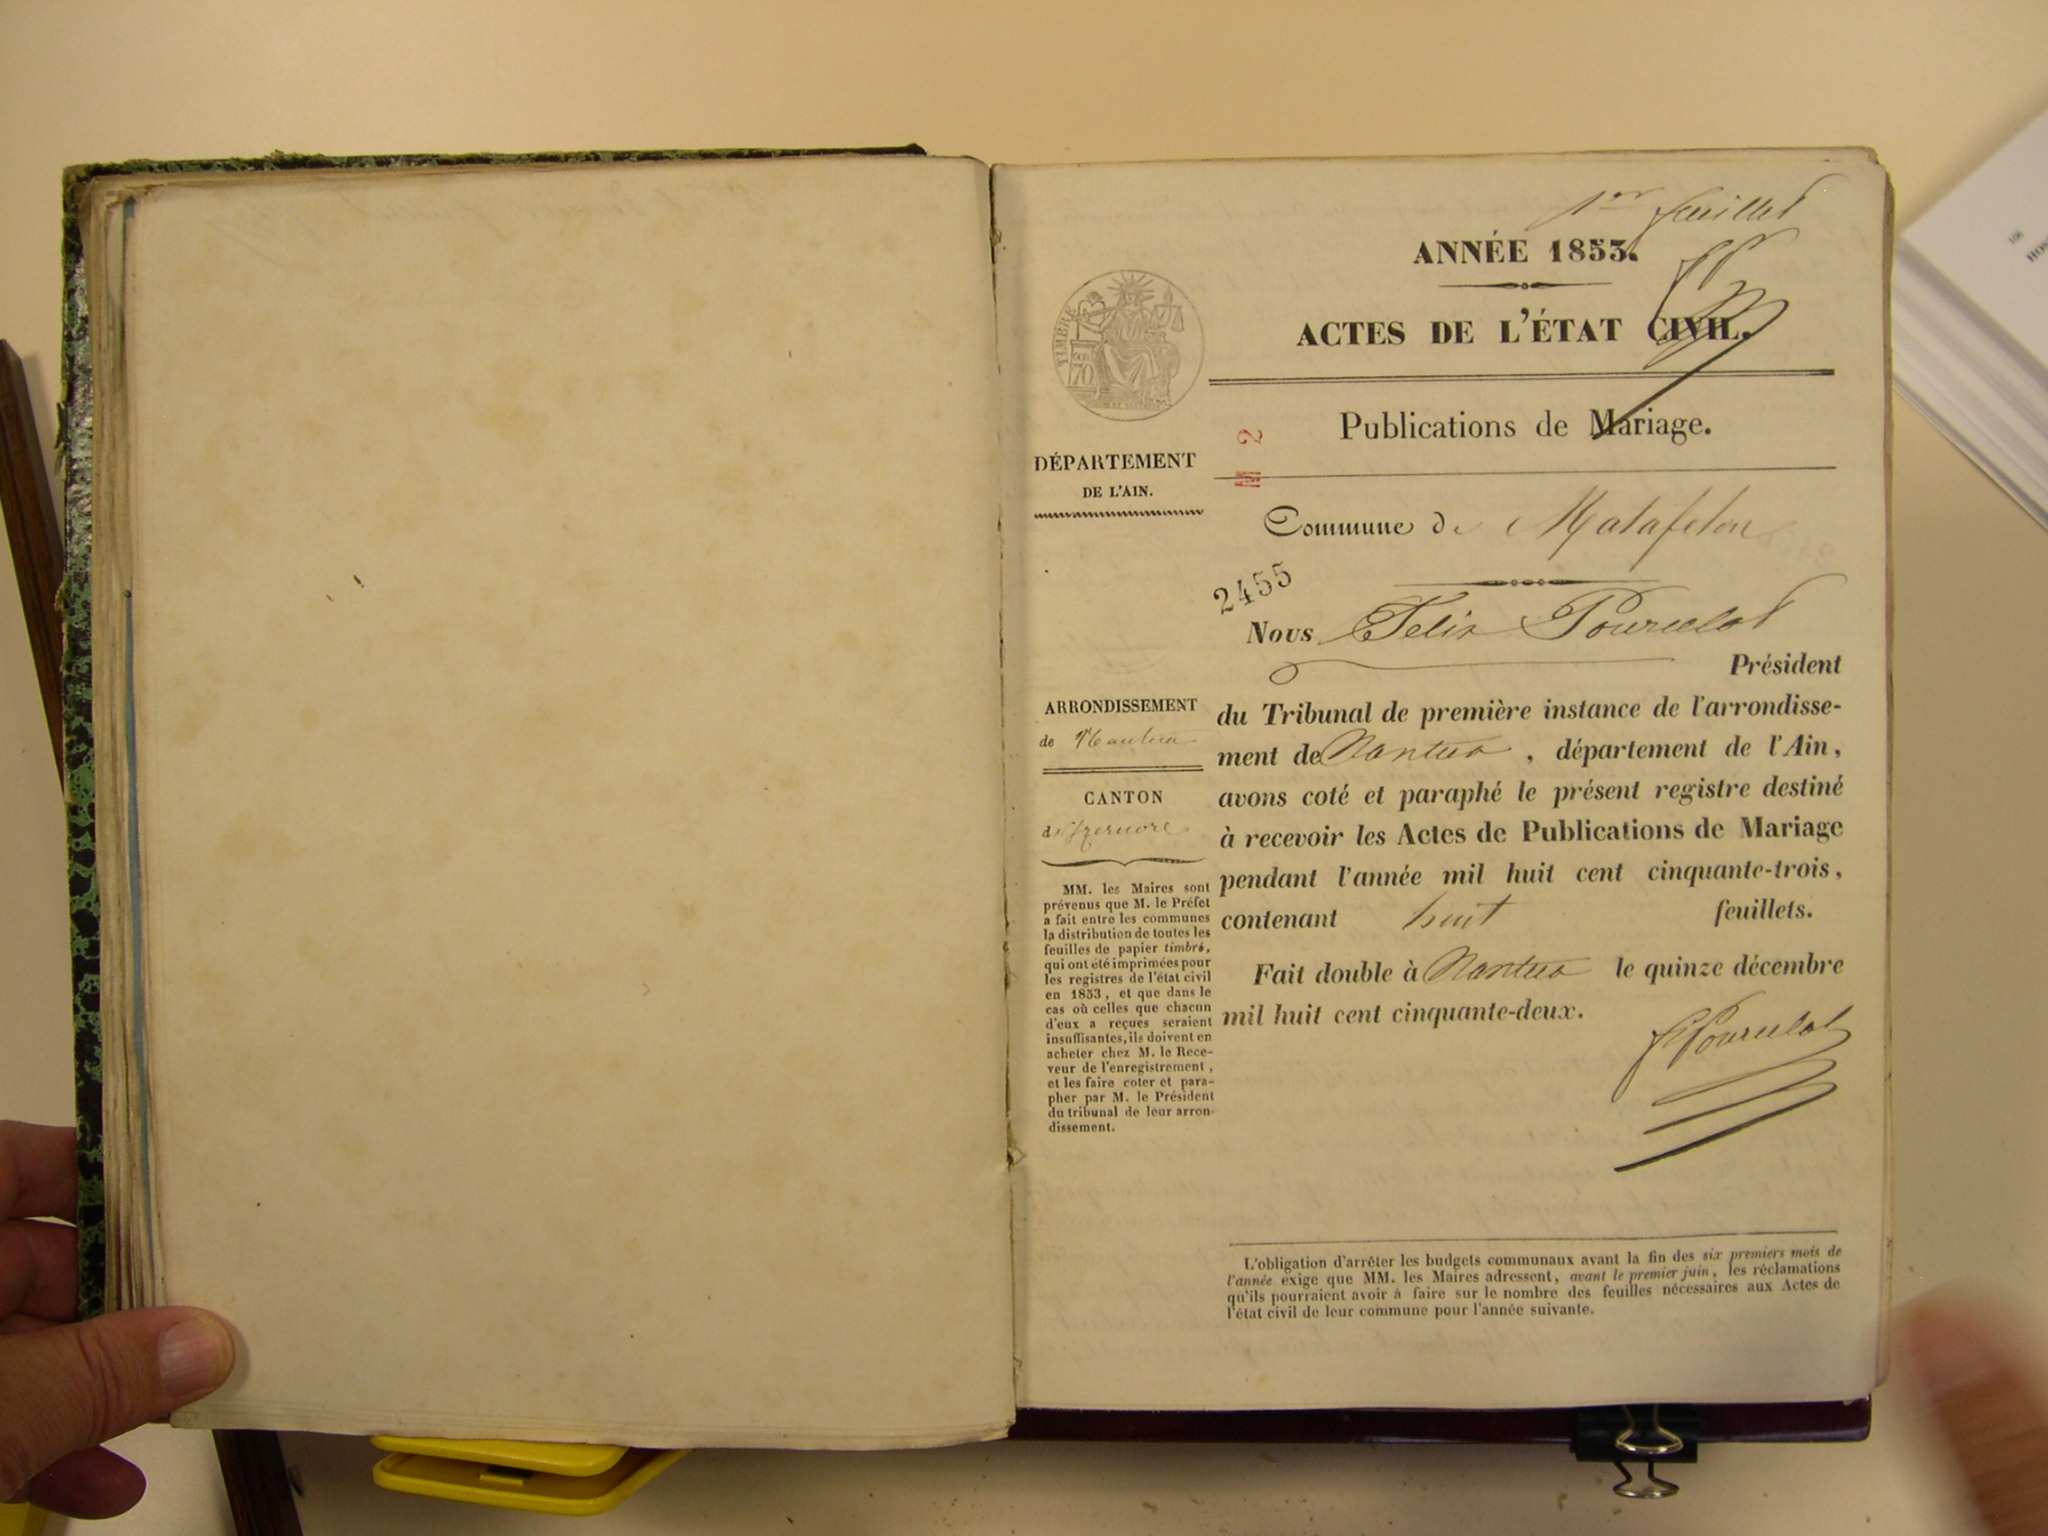 1er feuillet
ANNÉE 1853.
ACTES DE L'ÉTAT CIVIL.
Publications de Mariage.
TIMBRE
70
DÉPARTEMENT
DE L'AIN.
2
Commune de Matafelon
2455
Nous Felix Pourcelot
Président
du Tribunal de première instance de l'arrondisse-
ment de Nantua, département de l'Ain,
avons coté et paraphé le présent registre destiné
à recevoir les Actes de Publications de Mariage
pendant l'année mil huit cent cinquante-trois,
contenant huit feuillets.
Fait double à Nantua le quinze décembre
mil huit cent cinquante-deux.
F Pourcelot
ARRONDISSEMENT
de Nantua
CANTON
d'Izernore
MM. les Maires sont
prévenus que M. le Préfet
a fait entre les communes
la distribution de toutes les
feuilles de papier timbré,
qui ont été imprimées pour
les registres de l'état civil
en 1853, et que dans le
cas où celles que chacun
d'eux a reçues seraient
insuffisantes, ils doivent en
acheter chez M. le Rece-
veur de l'enregistrement,
et les faire coter et para-
pher par M. le Président
du tribunal de leur arron-
dissement.
L'obligation d'arrêter les budgets communaux avant la fin des six premiers mois de
l'année exige que MM. les Maires adressent, avant le premier juin, les réclamations
qu'ils pourraient avoir à faire sur le nombre des feuilles nécessaires aux Actes de
l'état civil de leur commune pour l'année suivante.